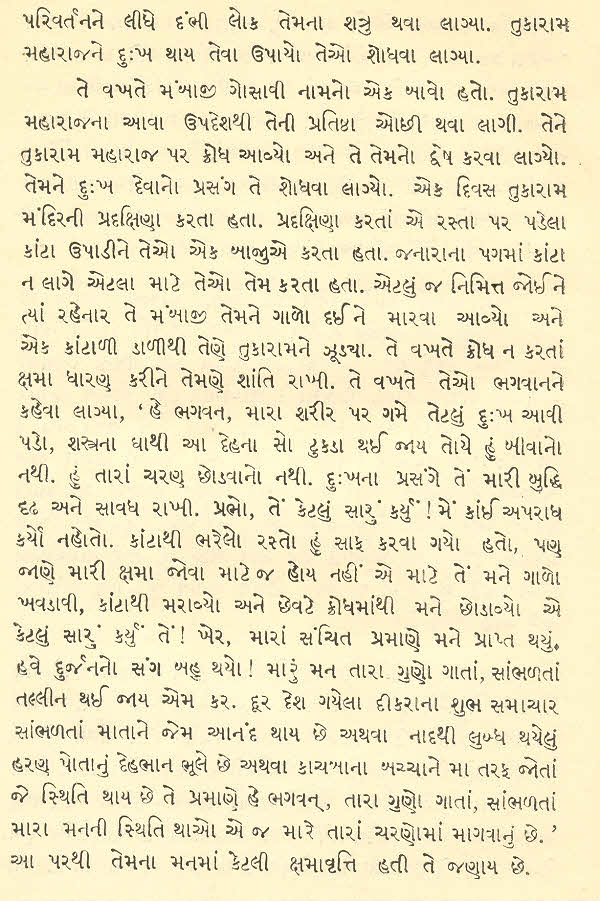 પરિવર્તનને લીધે દંભી લોક તેમના શત્રુ થવા લાગ્યા. તુકારામ
મહારાજને દુઃખ થાય તેવા ઉપાયો તેઓ શોધવા લાગ્યા.
તે વખતે મંબાજી ગોસાવી નામનો એક બાવો હતો. તુકારામ
મહારાજના આવા ઉપદેશથી તેની પ્રતિષ્ઠા ઓછી થવા લાગી. તેને
તુકારામ મહારાજ પર ક્રોધ આવ્યો અને તે તેમનો દ્વેષ કરવા લાગ્યો.
તેમને દુઃખ દેવાનો પ્રસંગ તે શોધવા લાગ્યો. એક દિવસ તુકારામ
મંદિરની પ્રદક્ષિણા કરતા હતા. પ્રદક્ષિણા કરતાં એ રસ્તા પર પડેલા
કાંટા ઉપાડીને તેઓ એક બાજુએ કરતા હતા. જનારાના પગમાં કાંટા
ન લાગે એટલા માટે તેઓ તેમ કરતા હતા. એટલું જ નિમિત્ત જોઈને
ત્યાં રહેનાર તે મંબાજી તેમને ગાળો દઈને મારવા આવ્યો અને
એક કાંટાળી ડાળીથી તેણે તુકારામને ઝૂડ્યા. તે વખતે ક્રોધ ન કરતાં
ક્ષમા ધારણ કરીને તેમણે શાંતિ રાખી. તે વખતે તેઓ ભગવાનને
કહેવા લાગ્યા, ‘હે ભગવન, મારા શરીર પર ગમે તેટલું દુઃખ આવી
પડો, શસ્ત્રના ઘાથી આ દેહના સો ટુકડા થઈ જાય તોયે હું બીવાનો
નથી. હું તારાં ચરણ છોડવાનો નથી. દુઃખના પ્રસંગે તેં મારી બુદ્ધિ
દૃઢ અને સાવધ રાખી. પ્રભો, તેં કેટલું સારું કર્યું! મેં કાંઈ અપરાધ
કર્યો નહોતો. કાંટાથી ભરેલો રસ્તો હું સાફ કરવા ગયો હતો, પણ
જાણે મારી ક્ષમા જોવા માટે જ હોય નહીં એ માટે તેં મને ગાળો
ખવડાવી, કાંટાથી મરાવ્યો અને છેવટે ક્રોધમાંથી મને છોડાવ્યો એ
કેટલું સારું કર્યું તેં! ખેર, મારાં સંચિત પ્રમાણે મને પ્રાપ્ત થયું.
હવે દુર્જનનો સંગ બહુ થયો! મારું મન તારા ગુણો ગાતાં, સાંભળતાં
તલ્લીન થઈ જાય એમ કર. દૂર દેશ ગયેલા દીકરાના શુભ સમાચાર
સાંભળતાં માતાને જેમ આનંદ થાય છે અથવા નાદથી લુબ્ધ થયેલું
હરણ પોતાનું દેહભાન ભૂલે છે અથવા કાચબાના બચ્ચાને મા તરફ જોતાં
જે સ્થિતિ થાય છે તે પ્રમાણે હે ભગવન્, તારા ગુણો ગાતાં, સાંભળતાં
મારા મનની સ્થિતિ થાઓ એ જ મારે તારાં ચરણોમાં માગવાનું છે.’
આ પરથી તેમના મનમાં કેટલી ક્ષમાવૃત્તિ હતી તે જણાય છે.